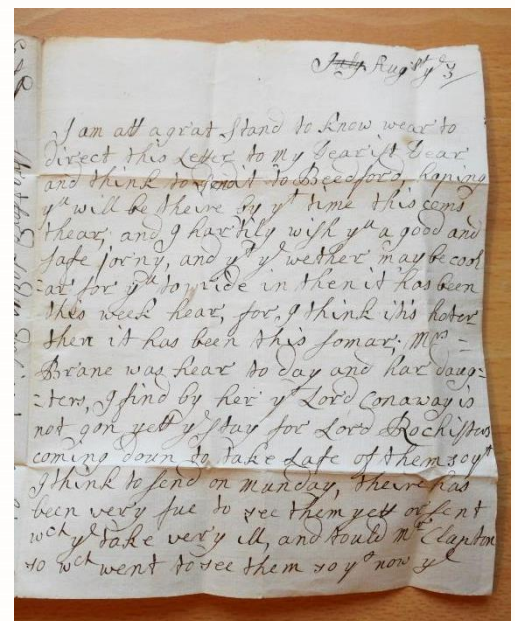 July Augst ye 3
I am att a grat stand to know wear to
direct this Letter to my Dearist Dear
and think to send it to Beedford, hoping
yu will be theire by yt time this coms
thear, and I hartily wish yu a good and
safe jorny, and yt ye wether may be cool
=ar for yu to ride in then it has been
this week hear, for, I think itis hoter
then it has been this somar, Mrs =
Brane was hear to day and har daug=
=ters, I find by her yt Lord Conaway is
not gon yett ye stay for Lord Rochistrs
coming down to take Lafe of them so yt
I think to send on munday, theire has
been very fue to see them yett or sent
wch ye take very ill, and tould Mr Clapton
so wch went to see them so yt now ye